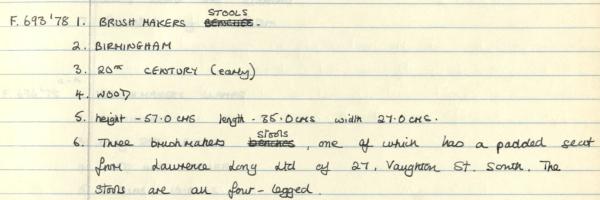 STOOLS
F. 693'78 1. BRUSH MAKERS BENCHES.
2. BIRMINGHAM
3. 20TH CENTURY (early)
4. WOOD
5. height - 57.0 CMS length - 35.0 CMS width 27.0 CMS.
STOOLS
6. Three brushmakers benches, one of which has a padded seat
from Lawrence Long Ltd of 27, Vaughton St. South. The
stools are all four-legged.